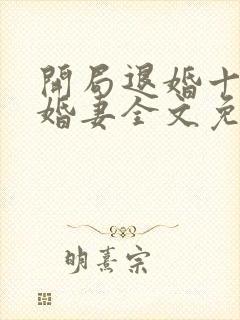 開局退婚十
婚妻全文免
明熹宗